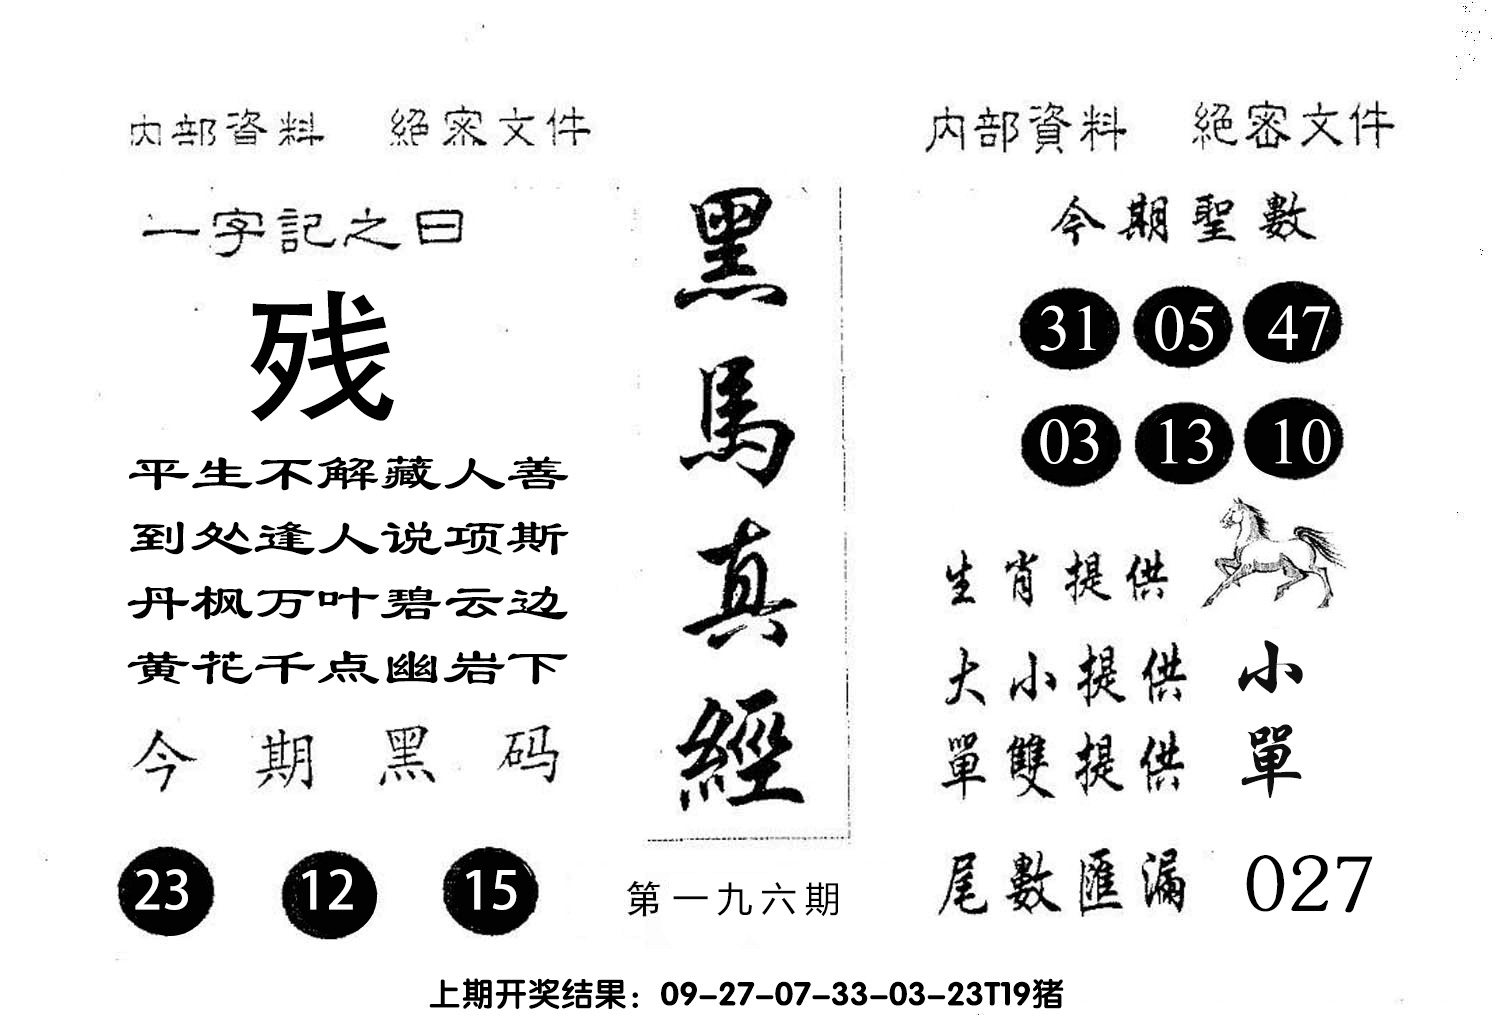 内部資料 絕密文件
一字記之曰
残
平生不解藏人善
到处逢人说项斯
丹枫万叶碧云边
黄花千点幽岩下
今期黑码
23 12 15
黑馬真經
第一九六期
内部資料 絕密文件
今期聖數
31 05 47
03 13 10
生肖提供
大小提供 小
單雙提供 單
尾數匯漏 027
上期开奖结果：09-27-07-33-03-23T19猪